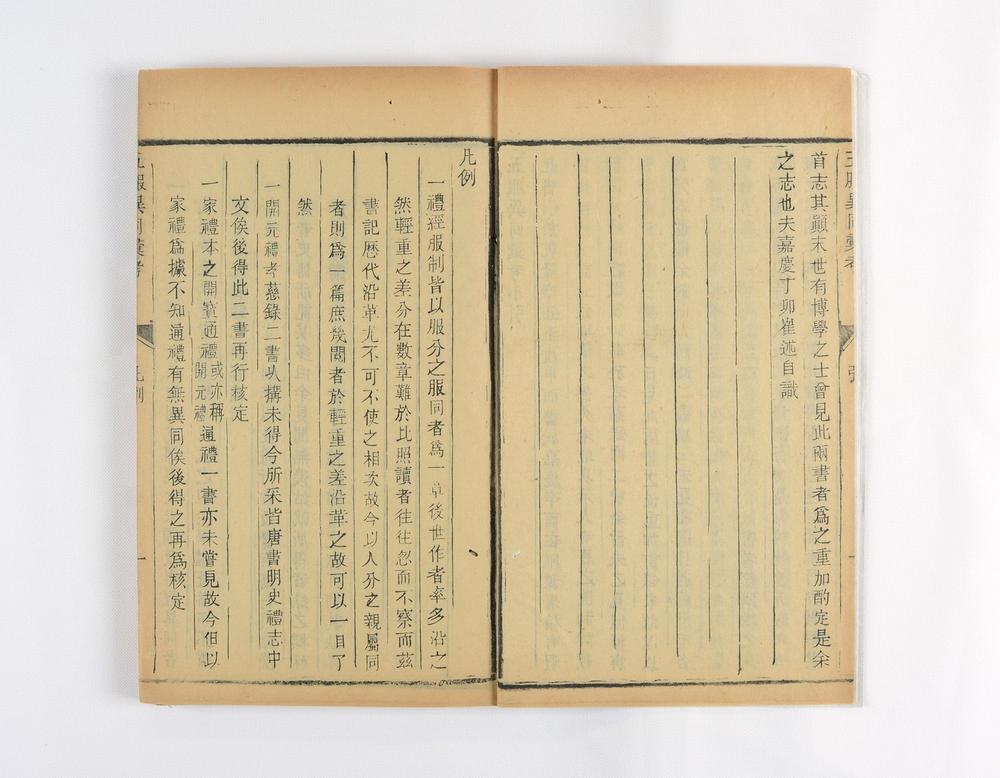 五服異同彙考
首志其顚末世有博學之士曾見此兩書者爲之重加酌定是余
之志也夫嘉慶丁卯崔述自識
凡例
一禮經服制皆以服分之服同者爲一章後世作者率多沿之
然輕重之差分在數章難於比照讀者往往忽而不察而茲
書記歷代沿革尤不可不使之相次故今以人分之親屬同
者則爲一篇庶幾閱者於輕重之差沿革之故可以一目了
然
一開元禮孝慈錄二書以搆未得今所采皆唐書明史禮志中
文俟後得此二書再行核定
一家禮本之開寶通禮或亦稱開元禮通禮一書亦未嘗見故今但以
家禮爲據不知通禮有無異同俟後得之再爲核定
五服異同彙考 凡例 一